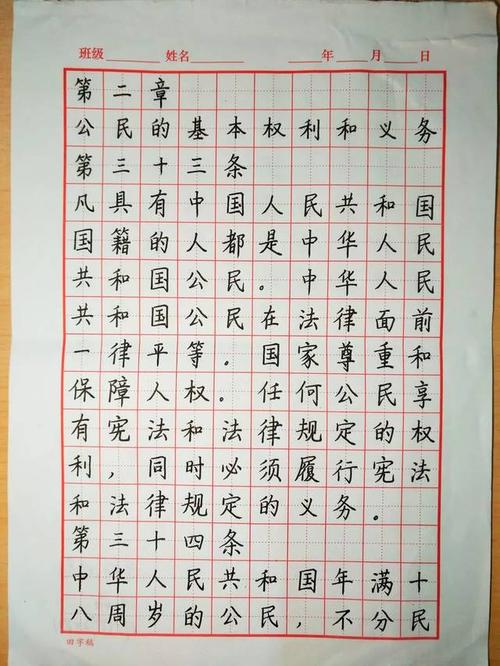 班级 姓名 年 月 日
第二章
公民的基本权利和义务
第三十三条
凡具有中国人民共和国
国籍的人都是中华人民
共和国公民。中华人民
共和国公民在法律面前
一律平等。国家尊重和
保障人权。任何公民享
有宪法和法律规定的权
利，同时必须履行宪法
和法律规定的义务。
第三十四条
中华人民共和国年满十
八周岁的公民，不分民
田字稿